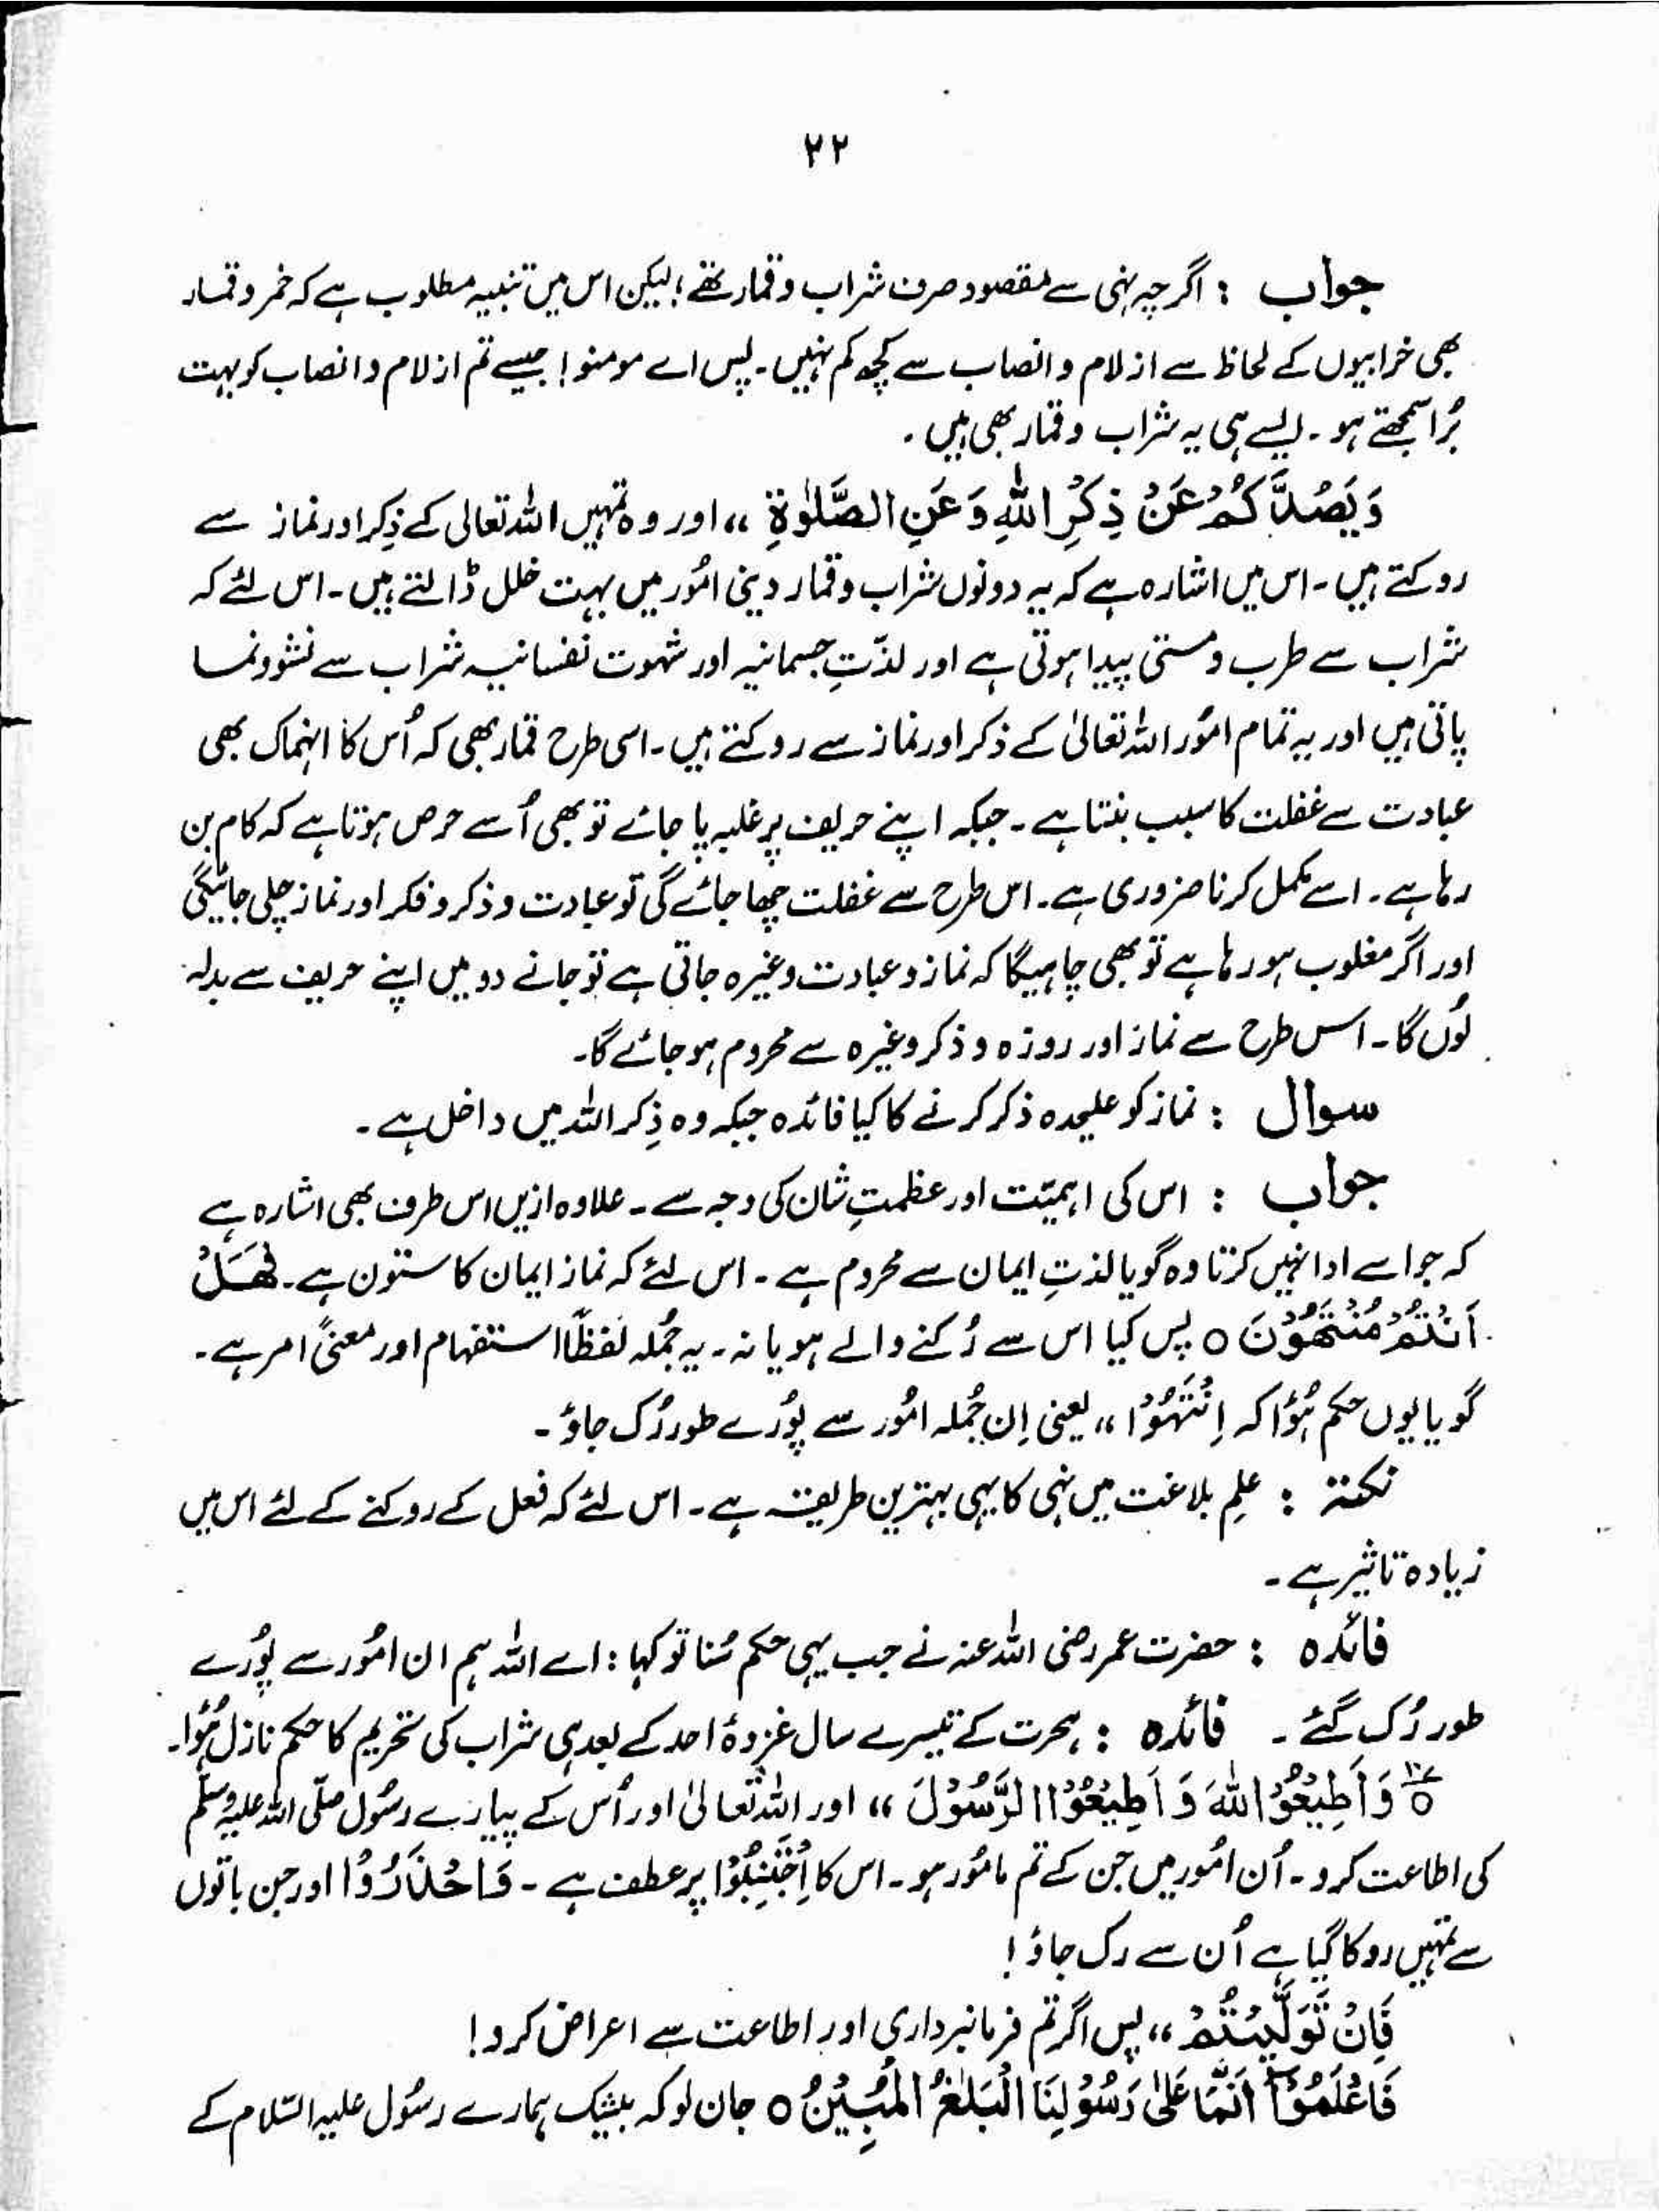 ۲۲
جواب : اگرچہ نہی سے مقصود صرف شراب و قمار تھے؛ لیکن اس میں تنبیہ مطلوب ہے کہ خمر و قمار
بھی خرابیوں کے لحاظ سے ازلام و انصاب سے کچھ کم نہیں۔ پس اے مومنو! جیسے تم ازلام و انصاب کو بہت
بُرا سمجھتے ہو۔ ایسے ہی یہ شراب و قمار بھی ہیں۔
وَيَصُدَّكُمْ عَنْ ذِكْرِ اللّٰهِ وَعَنِ الصَّلٰوةِ ،، اور وہ تمہیں اللہ تعالی کے ذِکر اور نماز سے
روکتے ہیں۔ اس میں اشارہ ہے کہ یہ دونوں شراب و قمار دینی امُور میں بہت خلل ڈالتے ہیں۔ اس لئے کہ
شراب سے طرب و مستی پیدا ہوتی ہے اور لذّتِ جسمانیہ اور شہوت نفسانیہ شراب سے نشوونما
پاتی ہیں اور یہ تمام امُور اللہ تعالیٰ کے ذکر اور نماز سے روکتے ہیں۔ اسی طرح قمار بھی کہ اُس کا انہماک بھی
عبادت سے غفلت کا سبب بنتا ہے۔ جبکہ اپنے حریف پر غلبہ پا جائے تو بھی اُسے حرص ہوتا ہے کہ کام بن
رہا ہے۔ اسے مکمل کرنا ضروری ہے۔ اس طرح سے غفلت چھا جائے گی تو عبادت و ذکر و فکر اور نماز چلی جائیگی
اور اگر مغلوب ہو رہا ہے تو بھی چاہیگا کہ نماز و عبادت وغیرہ جاتی ہے تو جانے دو میں اپنے حریف سے بدلہ
لُوں گا۔ اس طرح سے نماز اور روزہ و ذکر وغیرہ سے محروم ہو جائے گا۔
سوال : نماز کو علیحدہ ذکر کرنے کا کیا فائدہ جبکہ وہ ذِکر اللہ میں داخل ہے۔
جواب : اس کی اہمیّت اور عظمتِ شان کی وجہ سے۔ علاوہ ازیں اس طرف بھی اشارہ ہے
کہ جو اسے ادا نہیں کرتا وہ گویا لذتِ ایمان سے محروم ہے۔ اس لئے کہ نماز ایمان کا ستون ہے۔ فَهَلْ
اَنْتُمْ مُنْتَهُوْنَ ○ پس کیا اس سے رُکنے والے ہو یا نہ۔ یہ جُملہ لفظًا استفہام اور معنیً امر ہے۔
گویا یوں حکم ہُوَا کہ اِنْتَهُوْا ،، یعنی اِن جُملہ امُور سے پُورے طور رُک جاؤ۔
نکتہ : علمِ بلاغت میں نہی کا یہی بہترین طریقہ ہے۔ اس لئے کہ فعل کے روکنے کے لئے اس میں
زیادہ تاثیر ہے۔
فائدہ : حضرت عمر رضی اللہ عنہ نے جب یہی حکم سُنا تو کہا: اے اللہ ہم ان امُور سے پُورے
طور رُک گئے۔ فائدہ : ہجرت کے تیسرے سال غزوۂ احد کے بعد ہی شراب کی تحریم کا حکم نازل ہُوَا۔
○ وَاَطِيْعُوا اللّٰهَ وَاَطِيْعُوْا الرَّسُوْلَ ،، اور اللہ تعالیٰ اور اُس کے پیارے رسُول صلّی اللہ علیہ وسلّم
کی اطاعت کرو۔ اُن امُور میں جن کے تم مامُور ہو۔ اس کا اِجْتَنِبُوْا پر عطف ہے۔ وَاحْذَرُوْا اور جن باتوں
سے تمہیں روکا گیا ہے اُن سے رک جاؤ!
فَاِنْ تَوَلَّيْتُمْ ،، پس اگر تم فرمانبرداری اور اطاعت سے اعراض کرو!
فَاعْلَمُوْٓا اَنَّمَا عَلٰى رَسُوْلِنَا الْبَلٰغُ الْمُبِيْنُ ○ جان لو کہ بیشک ہمارے رسُول علیہ السّلام کے